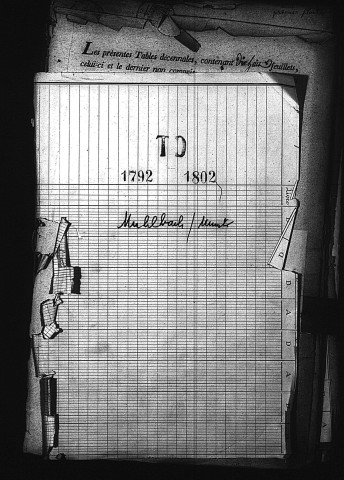 Les présentes Tables décennales, contenant dix feuillets,
celui-ci et le dernier non compris
TD
1792 1802
Muhlbach / Munster